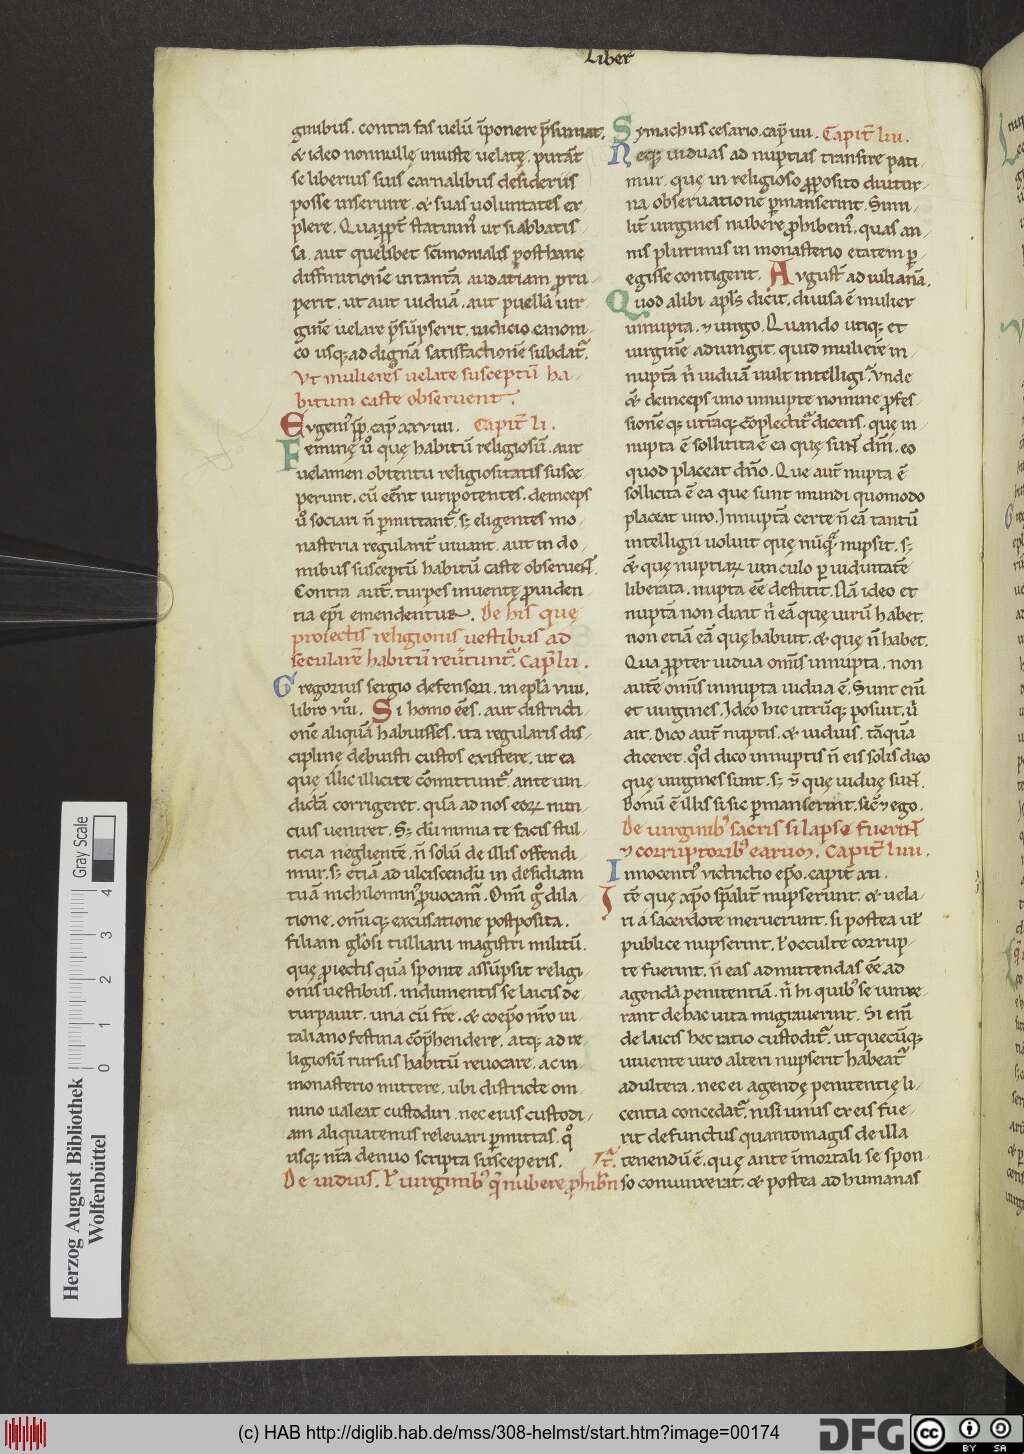 Liber
ginibus. contra fas uelū īponere p̄sumat.
& ideo nonnullę iniuste uelatę. putāt
se liberius suis carnalibus desideriis
posse inseruire. & suas uoluntates ex
plere. Quap̱p̱t̄ statuim᷒ ut si abbatis
sa. aut quęlibet sc̄imonialis post hanc
diffinitionē in tantā audatiam p̱ru
perit. ut aut uiduā. aut puellā uir
ginē uelare p̄sūpserit. iudicio canoni
co usq; ad dignā satisfactionē subdat᷑.
Vt mulieres uelate susceptū ha
bitum caste obseruent.
Evgeni᷒ pp̄. cap̄ xxviiii. Capit̄ li.
Feminę u͛o quę habitū religiosū. aut
uelamen obtentu religiositatis susce
perunt. cū eēnt uiripotentes. deinceps
u͛o sociari n̄ p̱mittant᷑. s; eligentes mo
nasteria regularit̄ uiuant. aut in do
mibus susceptū habitū caste obseruēt.
Contra aut̄. turpes inuentę p̱uiden
tia ep̄i emendentur. De his quę
proiectis religionis uestibus ad
secularē habitū reūtunt᷑. Cap̄ lii.
Gregorius sergio defensori. in ep̄la viiii.
libro viiii. Si homo eēs. aut districti
onē aliquā habuisses. ita regularis dis
ciplinę debuisti custos existere. ut ea
quę illic illicite cōmittunt᷑. ante uin
dictā corrigeret. quā ad nos eoꝝ nun
cius ueniret. S; dū nimia te facis stul
ticia neglientē. n̄ solū de illis offendi
mur. s; etiā ad ulciscendū in desidiam
tuā nichilomin᷒ p̱uocam᷑. Om̄i g̊ dila
tione. om̄iq; excusatione postposita.
filiam gl̄osi tulliani magistri militū.
quę p̱iectis quā sponte assūpsit religi
onis uestibus. indumentis se laicis de
turpauit. una cū fr̄e. & coep̄o nr̄o ui
taliano festina cōp̄hendere. atq; ad re
ligiosū rursus habitū reuocare. ac in
monasterio mittere. ubi districte om
nino ualeat custodiri. nec eius custodi
am aliquatenus releuari p̱mittas. q͛o
usq; nr̄a denuo scripta susceperis.
De uiduis. ł uirginib᷒ q̄ nubere p̱hibēn
t᷑.
Symachus cesario. cap̄ iiii. Capit̄ liii.
Neq; uiduas ad nuptias transire pati
mur. quę in religioso p̱posito diutur
na obseruatione p̱manserunt. Simi
lit̄ uirgines nubere p̱hibem᷒. quas an
nis plurimis in monasterio etatem p̱
egisse contigerit. Avgust̄ ad iulianā.
Quod alibi apl̄s dicit. diuisa ē mulier
innupta. ⁊ uirgo. Quando utiq; et
uirginē adiungit. quid mulierē in
nuptā n̄ uiduā uult intelligi? Vnde
& deinceps uno innupte nomine p̱fes
sionēq; utrāq; cōplectit᷑ dicens. quę in
nupta ē sollicita ē ea quę sunt dn̄i. eo
quod placeat dn̄o. Que aut̄ nupta ē
sollicita ē ea que sunt mundi quomodo
placeat uiro. Innuptā certe n̄ eā tantū
intelligi uoluit quę nūquā nupsit. s;
& quę nuptiaꝝ uinculo p̱ uiduitatē
liberata. nupta eē destitit. Nā ideo et
nuptā non dixit n̄ eā quę uirū habet.
non etiā eā quę habuit. & quę n̄ habet.
Qua p̱pter uidua om̄is innupta. non
autē om̄is innupta uidua ē. Sunt eni̅
et uirgines. Ideo hic utrūq; posuit. ubi
ait. Dico aut̄ nuptis. & uiduis. tāquā
diceret. qd̄ dico innuptis n̄ eis solis dico
quę uirgines sunt. s; ⁊ quę uiduę sunt.
Bonū ē illis si sic p̱manserint. sic̄ ⁊ ego.
De uirginib᷒ sacris si lapsę fuerint
⁊ corruptorib᷒ earum. Capit̄ liiii.
Innocenti᷒ victricio ep̄o. capit̄ xii.
Itē quę xp̄o sp̄alit̄ nupserunt. & uela
ri a sacerdote meruerunt. si postea ul̄
publice nupserint. ł occulte corrup
te fuerint. n̄ eas admittendas eē ad
agendā penitentiā. n̄ hi quib᷒ se iunxe
rant de hac uita migrauerint. Si eni̅
de laicis hec ratio custodit᷑. ut quecūq;
uiuente uiro alteri nupserit habeat᷑
adultera. nec ei agendę penitentię li
centia concedat᷑. nisi unus ex eis fue
rit defunctus quantomagis de illa
tenendū ē. quę ante īmortali se spon
so coniunxerat. & postea ad humanas
Herzog August Bibliothek
Wolfenbüttel
Gray Scale
0 1 2 3 4
(c) HAB http://diglib.hab.de/mss/308-helmst/start.htm?image=00174
DFG
cc
BY SA